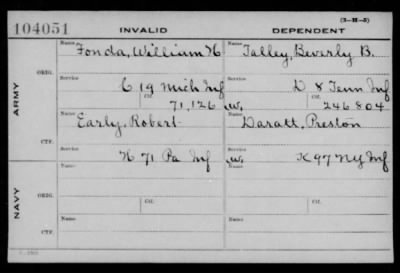 (3-H-5)
104051 INVALID DEPENDENT
Name Fonda, William H Name Talley, Beverly B.
ORIG.
Service Service
C 19 Mich Inf D 8 Tenn Inf
Ctf. Ctf.
71,126 W. 246804
ARMY
Name Early, Robert Name Daratt, Preston
CTF.
Service Service
H 71 Pa Inf W. K 97 NY Inf
Name Name
NAVY
ORIG.
Ctf. Ctf.
Name Name
CTF.